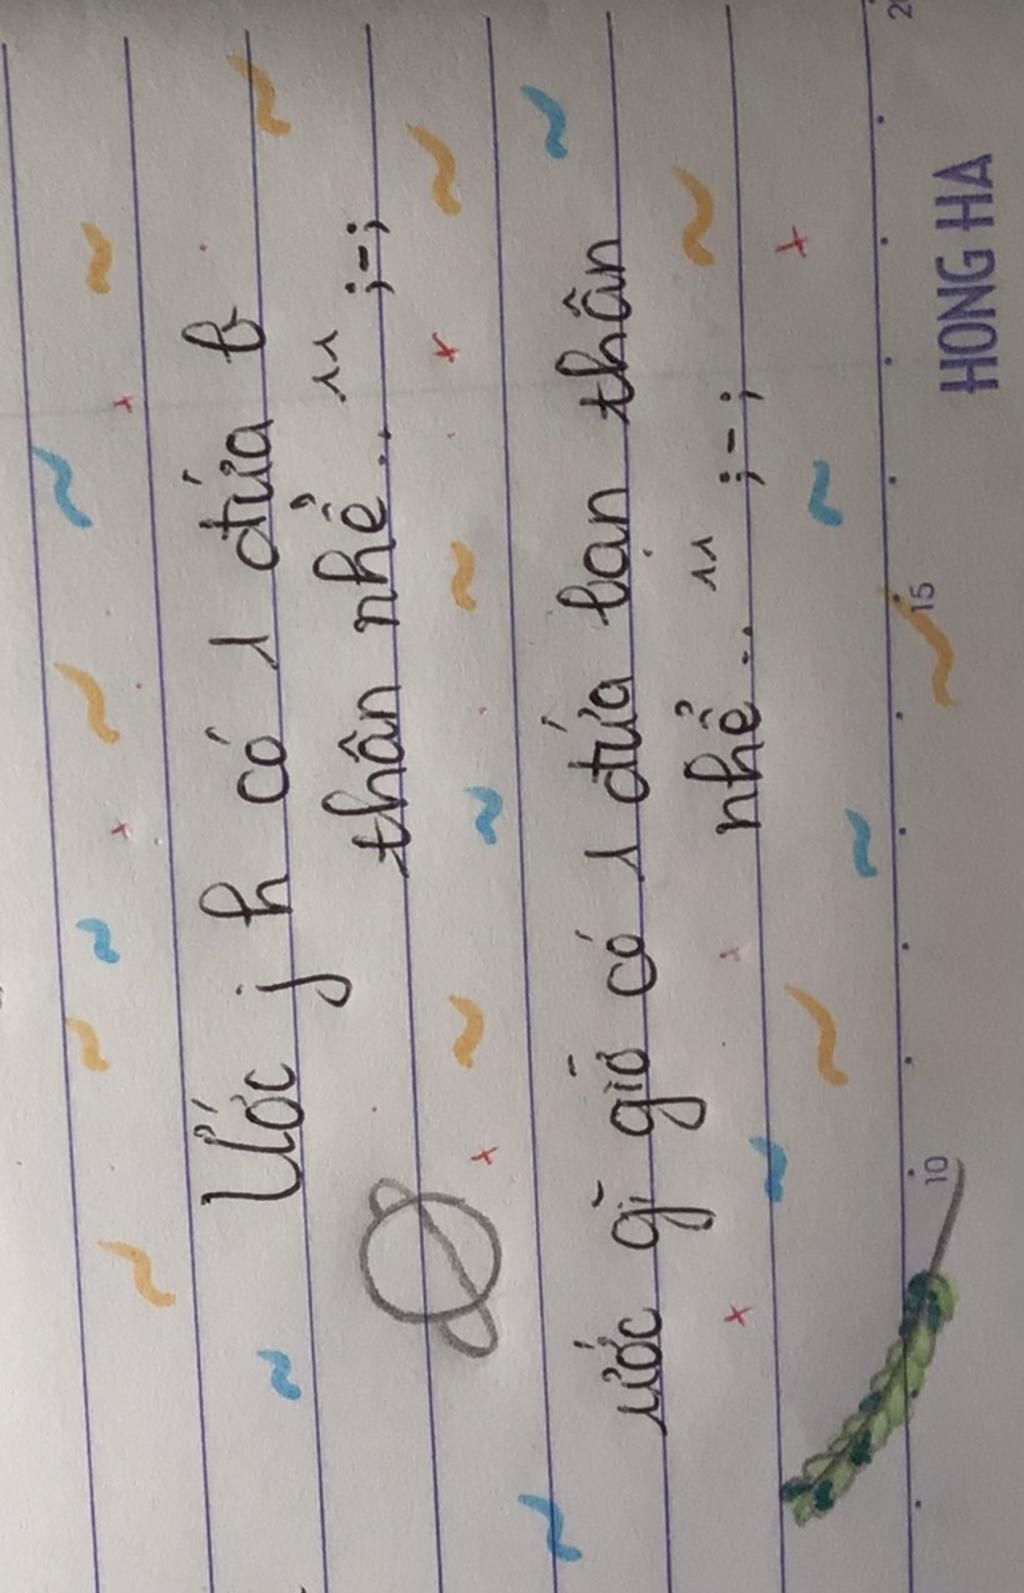 Ước j h có 1 đứa b
thân nhể... :: ;-;
ước gì giờ có 1 đứa bạn thân
nhể... :: ;-;
10
15
20
HONG HA